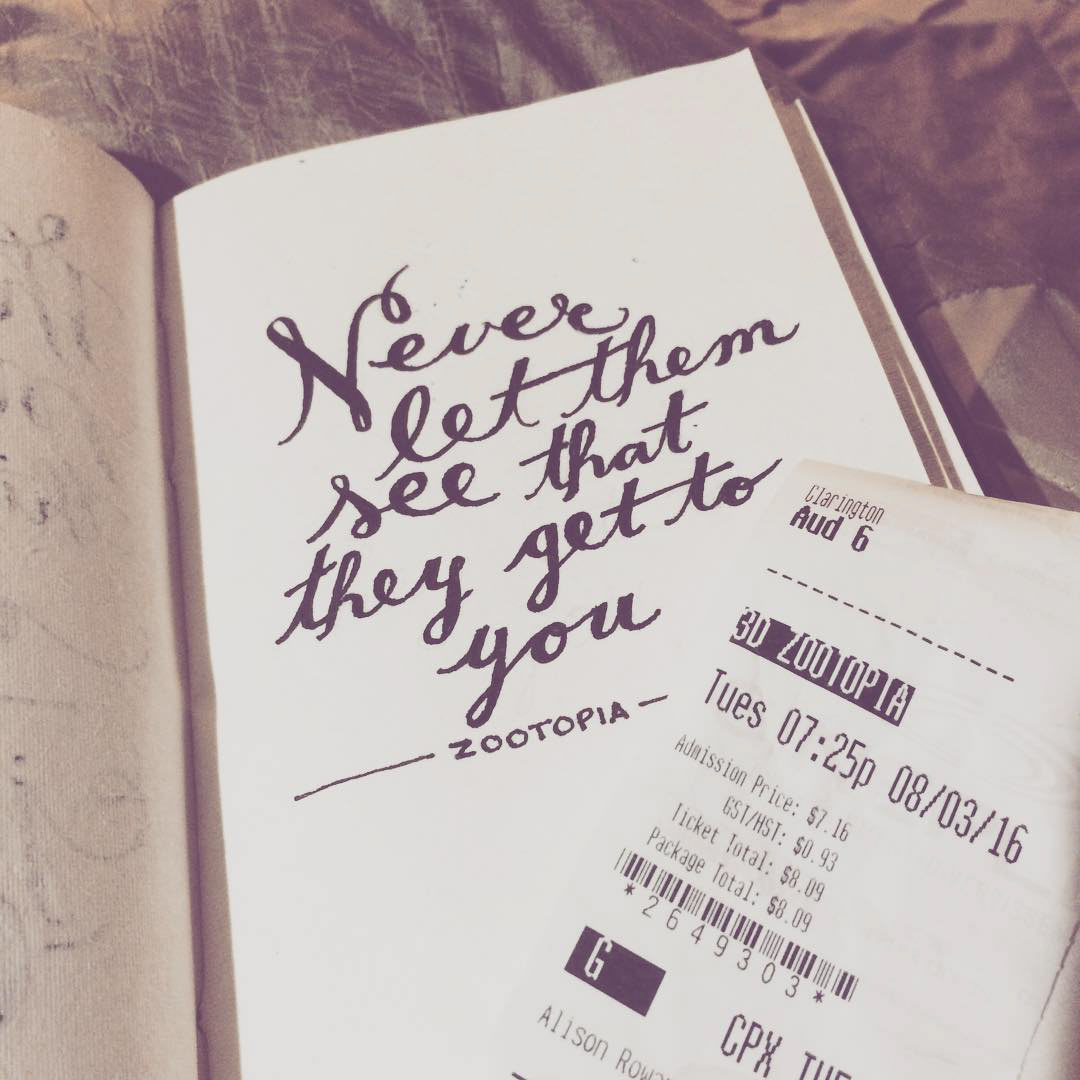 Never
let them
see that
they get to
you
ZOOTOPIA
Clarington
Aud 6
3D ZOOTOPIA
Tues 07:25p 08/03/16
Admission Price: $7.16
GST/HST: $0.93
Ticket Total: $8.09
Package Total: $8.09
*2649303*
G
CPX TUE
Alison